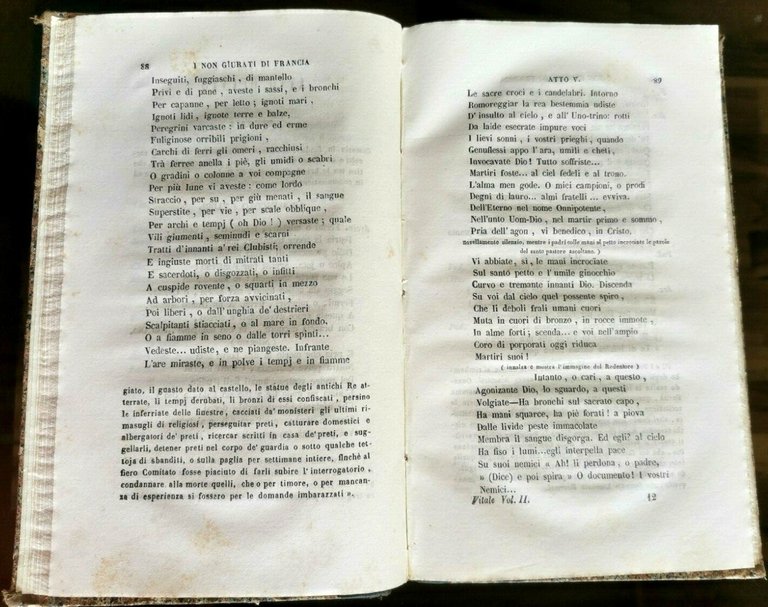 88 I NON GIURATI DI FRANCIA
Inseguiti, fuggiaschi, di mantello
Privi e di pane, aveste i sassi, e i bronchi
Per capanne, per letto; ignoti mari,
Ignoti lidi, ignote terre e balze,
Peregrini varcaste: in dure ed erme
Fuliginose orribili prigioni,
Carchi di ferri gli omeri, racchiusi
Trà ferree anella i piè, gli umidi o scabri
O gradini o colonne a voi compagne
Per più lune vi aveste: come lordo
Straccio, per su, per giù menati, il sangue
Superstite, per vie, per scale obblique,
Per archi e tempj (oh Dio!) versaste; quale
Vili giumenti, seminudi e scarni
Tratti d'innanti a'rei Clubisti; orrende
E ingiuste morti di mitrati tanti
E sacerdoti, o disgozzati, o infitti
A cuspide rovente, o squarti in mezzo
Ad arbori, per forza avvicinati,
Poi liberi, o dall'unghia de' destrieri
Scalpitanti stiacciati, o al mare in fondo,
O a fiamme in seno o dalle torri spinti...
Vedeste... udiste, e ne piangeste. Infrante
L'are miraste, e in polve i tempj e in fiamme
giato, il guasto dato al castello, le statue degli antichi Re at-
terrate, li tempj derubati, li bronzi di essi confiscati, persino
le inferriate delle finestre, cacciati da' monisteri gli ultimi ri-
masugli di religiosi, perseguitar preti, catturare domestici e
albergatori de' preti, ricercar scritti in casa de' preti, e sug-
gellarli, detener preti nel corpo de' guardia o sotto qualche tet-
toja di sbanditi, o sulla paglia per settimane intiere, finchè al
fiero Comitato fosse piaciuto di farli subire l'interrogatorio,
condannare alla morte quelli, che o per timore, o per mancan-
za di esperienza si fossero per le domande imbarazzati ».
ATTO V. 89
Le sacre croci e i candelabri. Intorno
Romoreggiar la rea bestemmia udiste
D' insulto al cielo, e all' Uno-trino: rotti
Da laide esecrate impure voci
I lievi sonni, i vostri prieghi, quando
Genuflessi appo l' ara, umili e cheti,
Invocavate Dio! Tutto soffriste...
Martiri foste... al ciel fedeli e al trono.
L'alma men gode. O miei campioni, o prodi
Degni di lauro... almi fratelli ... evviva.
Dell'Eterno nel nome Onnipotente,
Nell'unto Uom-Dio, nel martir primo e sommo,
Pria dell' agon, vi benedico, in Cristo.
novellamente silenzio, mentre i padri sulle mani al petto incrociate le parole
del santo pastore ascoltano.)
Vi abbiate, si, le mani incrociate
Sul santo petto e l'umile ginocchio
Curvo e tremante innanti Dio. Discenda
Su voi dal cielo quel possente spiro,
Che li deboli frali umani cuori
Muta in cuori di bronzo, in rocce immote,
In alme forti; scenda... e voi nell'ampio
Coro di porporati oggi riduca
Martiri suoi!
(innalza e mostra l'immagine del Redentore)
Intanto, o cari, a questo,
Agonizante Dio, lo sguardo, a questi
Volgiate—Ha bronchi sul sacrato capo,
Ha mani squarce, ha piè forati! a piova
Dalle livide peste immacolate
Membra il sangue disgorga. Ed egli? al cielo
Ha fiso i lumi... egli interpella pace
Su suoi nemici « Ah! li perdona, o padre,
» (Dice) e poi spira » O documento! I vostri
Nemici...
Vitale Vol. II. 12